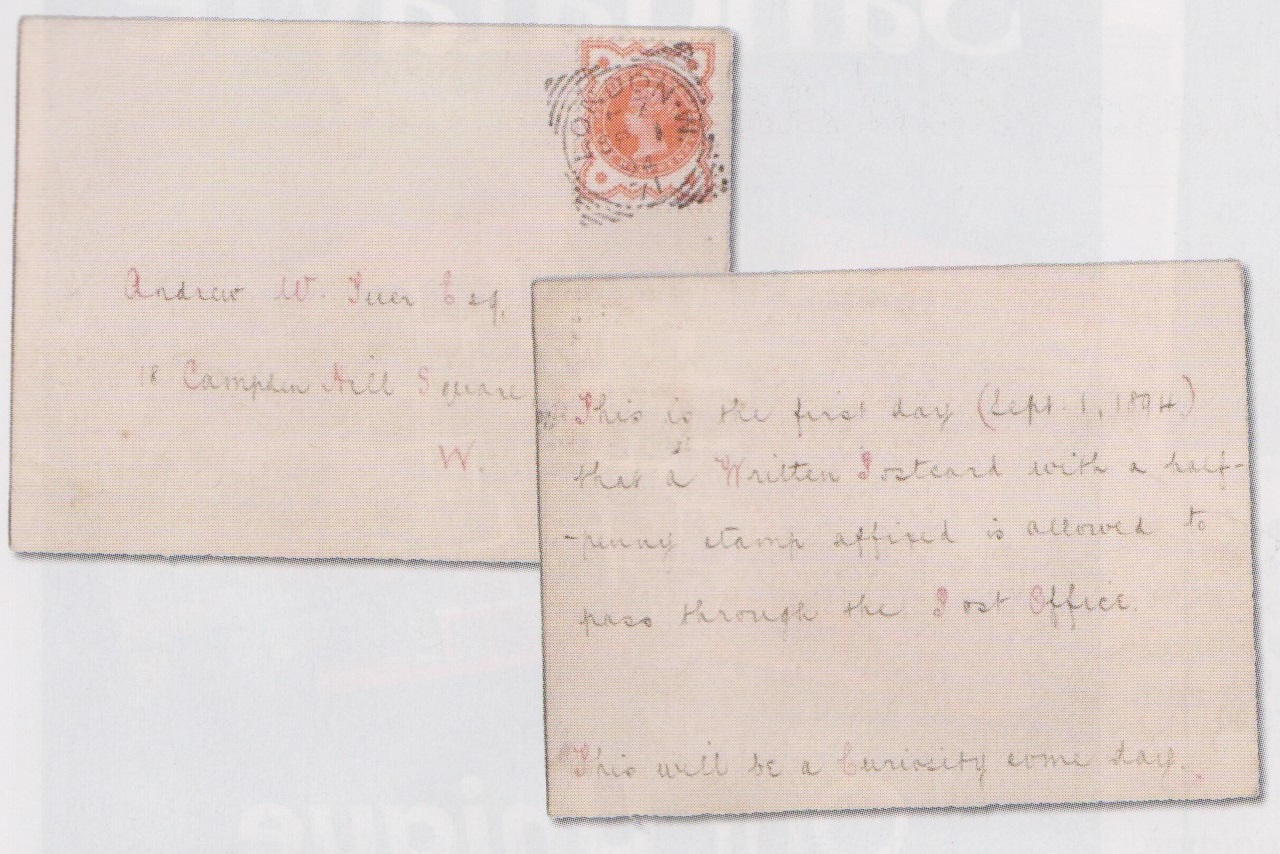 LONDON · W.
Andrew W. Tuer Esq.
18 Campden Hill Square
W.
This is the first day (Sept. 1, 1894)
that a Written Postcard with a half-
-penny stamp affixed is allowed to
pass through the Post Office.
This will be a Curiosity some day.